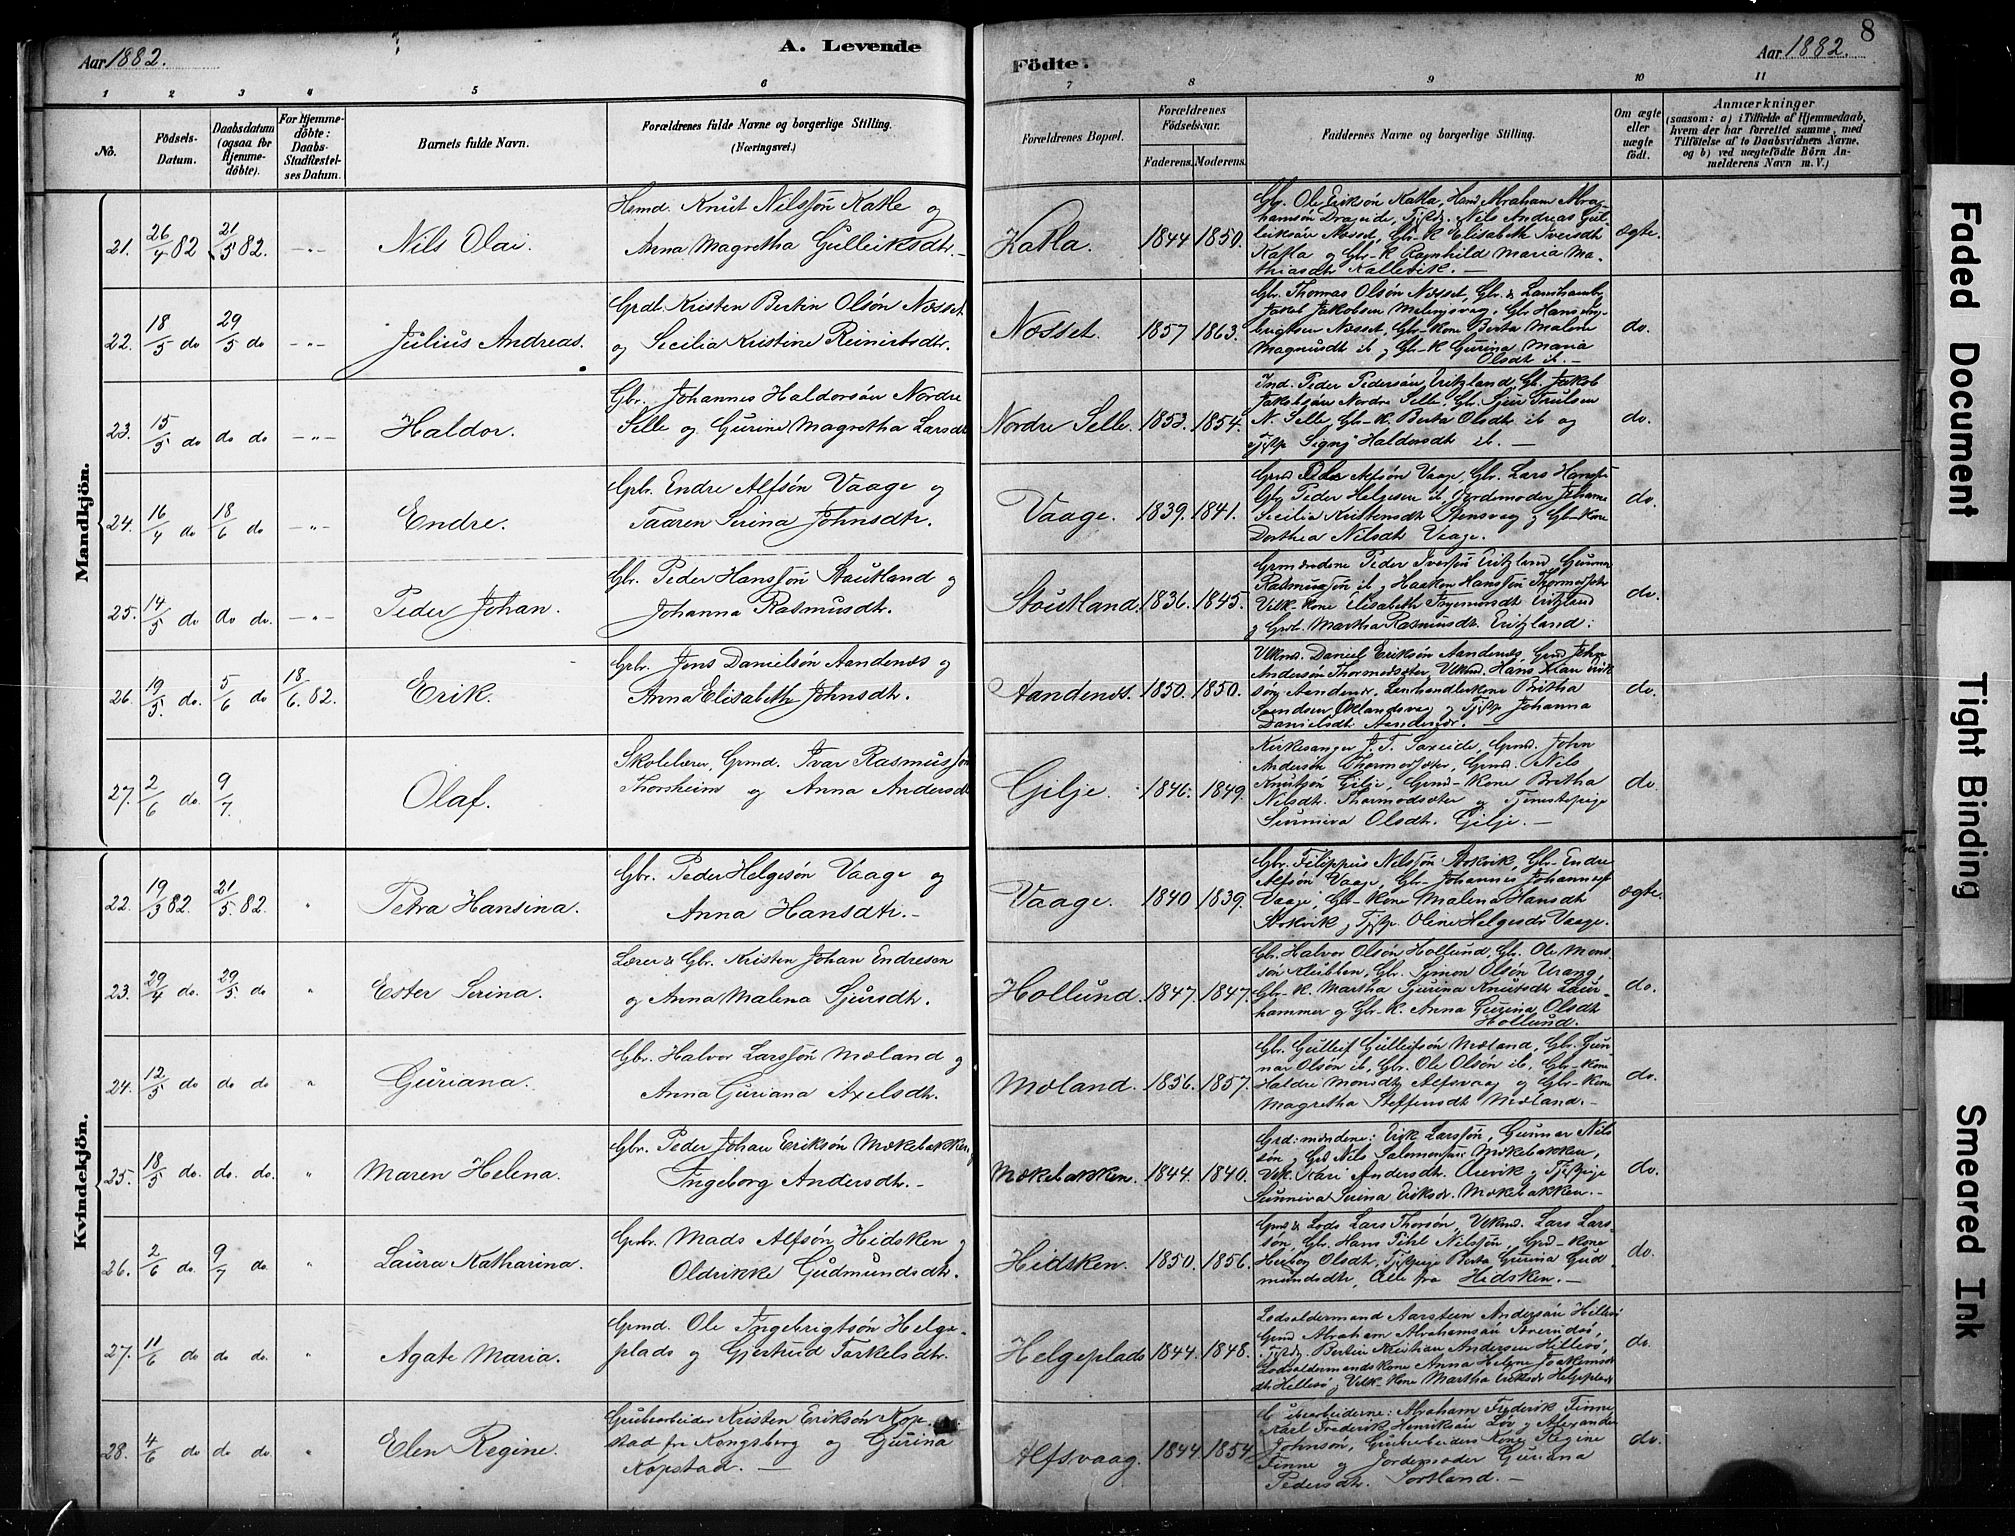 8
Aar 1882.
A. Levende
Födte.
Aar 1882.
1 2 3 4 5 6 7 8 9 10 11
No.
Födsels-
Datum.
Daabsdatum
(ogsaa for
Hjemme-
döbte).
For Hjemme-
döbte:
Daabs-
Stadfæstel-
ses Datum.
Barnets fulde Navn.
Forældrenes fulde Navne og borgerlige Stilling.
(Næringsvei.)
Forældrenes Bopæl.
Forældrenes
Födselsaar.
Faderens. Moderens.
Faddernes Navne og borgerlige Stilling.
Om ægte
eller
uægte
födt.
Anmærkninger
(saasom: a) i Tilfælde af Hjemmedaab,
hvem der har forrettet samme, med
Tilföielse af to Daabsvidners Navne,
og b) ved uægtefödte Börn An-
melderens Navn m. V.)
Mandkjön.
21. 26/4 82 21/5 82. —„— Nils Olai
Hsmd. Knut Nilssön Katle og
Anna Magretha Gulleiksdtr.—
Katla. 1844 1850.
Gbr. Ole Eriksön Katla, Hsmd Abraham Abra-
hamsön Drageide, Tjstdr. Nils Andreas Gul-
leiksön Nesset, Gbr-K Elisabeth Iversdtr
Katla og Gbr-K Ragnhild Maria Ma-
thiasdtr Kallevik.—
ægte.
22. 18/5 do 29/5 do —„— Julius Andreas.
Grdl. Kristen Bertin Olsön Næsset
og Secilia Kristine Reinertsdtr.
Næsset. 1857 1863.
Gbr. Thomas Olsön Næsset, Gbr. & Landhandler
Jakob Jakobsen Melingsvag, Gbr Hans Inge-
brigtsen Næsset, Gbr-kone Berta Malene
Magnusdtr ib og Gbr-K Gurina Maria
Olsdtr ib.—
do.
23. 15/5 do do do —„— Haldor.
Gbr. Johannes Haldorsön Nordre
Selle og Gurine Magretha Larsdtr
Nordre Selle. 1853. 1854.
Ind. Peder Pedersön Eritzland, Gb. Jakob
Jakobsön Nordre Selle, Gbr. Sjur Trulsen
N. Selle, Gbr-K. Berta Olsdtr ib og
Tjstp Signy Haldorsdtr ib.—
do.
24. 16/4 do 18/6 do —„— Endre.
Gbr. Endre Alfsön Vaage og
Taaren Serina Johnsdtr.
Vaage. 1839. 1841.
Grmd Peder Alfsön Vaage, Gbr. Lars Hanssön
Gbr Peder Helgesen ib, Jordemoder Johanne
Secilia Kristensdtr Stensvag og Gbr-kone
Dorthea Nilsdtr Vaage.
do.
25. 14/5 do do do. —„— Peder Johan.
Gbr. Peder Hanssön Stautland og
Johanna Rasmusdtr.
Stoutland. 1836. 1845.
Grmændene Peder Iversön Eritzland, Gunnar
Rasmussön ib, Haaken Hanssön Thormodsæter
Vilk-Kone Elisabeth Ingemundsdtr Eritzland
og Grdl. Martha Rasmusdtr. Eritzland.
do.
26. 19/5. do. 5/6 do 18/6. 82. Erik.
Gbr. Jens Danielsön Aandenæs og
Anna Elisabeth Johnsdtr.
Aandenæs. 1850. 1850.
Vlkmd. Daniel Eriksön Aandenæs, Grmd John
Andersön Thormodsæter, Vlkmd. Hans Xian Erik-
sön Aandenæs, Landhandlerkone Britha
Svendsen Oklandsvag og Tjstp Johanna
Danielsdtr Aandenæs.—
do.
27. 2/6 do. 9/7. Olaf.
Skolelærer, Grmd. Ivar Rasmussön
Thorsheim og Anna Andersdtr
Gilje. 1846. 1849.
Kirkesanger J. T. Saxeide, Grmd. John
Andersön Thormodsæter, Grmd. Nils
Knutsön Gilje, Grmd-Kone Britha
Nilsdtr. Thormodsæter og Tjenestepige
Sunniva Olsdtr. Gilje.—
do
Kvindekjön.
22. 19/3 82. 21/5. 82. „ Petra Hansina.
Gbr. Peder Helgesön Vaage og
Anna Hansdtr.—
Vaage. 1840 1839.
Gbr. Filippus Nilssön Stokvik, Gbr. Endre
Alfsön Vaage, Gbr. Johannes Johanness.
Vaage, Gbr-Kone Malena Hansdtr
Stokvik og Tjstp. Oline Helgesdtr Vaage.—
ægte.
23. 29/4 do. 29/5. do „ Ester Serina.
Lærer & Gbr. Kristen Johan Endresen
og Anna Malena Sjursdtr.
Hollund. 1847. 1847.
Gbr. Halvor Olsön Hollund, Gb. Ole Mons-
sön Klubben, Gbr. Simon Olsön Urang,
Gbr-K. Martha Sjurina Knutsdtr Laur-
hammer og Gbr-K. Anna Gurina Olsdtr
Hollund.
do.
24. 12/5 do do do „ Guriana.
Gbr. Halvor Larssön Mæland og
Anna Guriana Axelsdtr.
Mæland. 1856. 1857.
Gbr. Gulleif Gulleifsön Mæland, Gbr. Gun-
nar Olsön ib, Gbr. Ole Olsön ib, Gbr-Kone
Haldre Monsdtr Alfsvaag og Gbr-Kone
Magretha Steffensdtr Mæland.—
do.
25. 18/5 do. do. do. „ Maren Helena.
Gbr. Peder Johan Eriksön Mækebakken
Ingeborg Andersdtr.—
Mækebakken. 1844. 1840.
Grd: mændene: Erik Larssön, Gunnar Nils
sön og Grd Nils Salomonsen Mækebakken,
Vlk. Kari Andersdtr. Arevik og Tjstpige
Sunniva Serina Eriksdr. Mækebakken.—
do.
26. 2/6 do. 9/7 do. „ Laura Katharina.
Gbr. Mads Alfsön Hidsken og
Oldrikke Gudmundsdtr.
Hidsken. 1850. 1856.
Grmd & Lods Lars Thorsön, Vlkmd. Lars Lars-
sön, Gbr. Hans Tihl Nilssön, Grd-kone
Herborg Olsdtr, Tjstpige Berta Gurina Gud-
mundsdtr, Alle fra Hidsken.—
do.
27. 11/6 do do do. „ Agate Maria.
Grmd. Ole Ingebrigtsön Helge-
plads og Gjertrud Torkelsdtr.
Helgeplads 1844. 1848.
Lodsoldermand Aarsteen Andersön Hillesö
Grmd Abraham Abrahamsön
Tjstdg. Bertin Kristian Andersen Hillesö,
Lodsoldermandskone Anna Helene Joakims-
dtr Hillesö og Vilk-Kone Martha Eriksdtr Helgeplads
do.
28. 4/6 do do do. „ Elen Regine.
Grubearbeider Kristen Eriksön Kop-
stad fra Kongsberg og Gurina
Kopstad.—
Alfsvaag. 1844. 1854
Grubearbeiderne: Abraham Frederik Finne
Karl Frederik Henriksön Löv og Alexander
Johnsön, Grubearbeiders Kone Regine
Finne og Jordemoder Guriana
Pedersdtr. Sortland.—
do.
Faded Document
Tight Binding
Smeared Ink